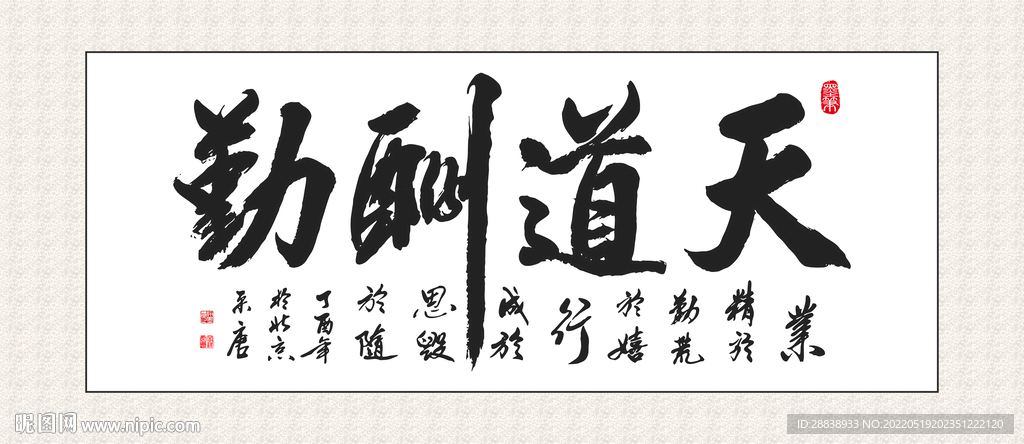 天道酬勤
業
精於
勤荒
於嬉
行
成於
思毀
於隨
丁酉年
於北京
昵图网 www.nipic.com
ID:28838933 NO:20220519202351222120